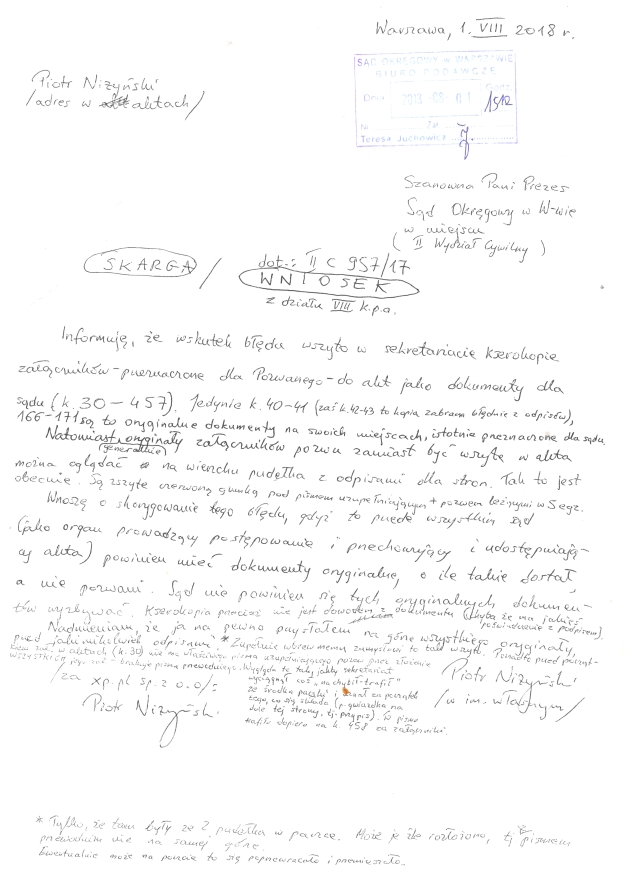 Warszawa, 1. VIII 2018 r.
Piotr Niżyński
/adres w aktach/
SĄD OKRĘGOWY w WARSZAWIE
BIURO PODAWCZE
Dnia 2018 -08- 01 godz. 1512
Nr zał.
Teresa Juchowicz
Szanowna Pani Prezes
Sąd Okręgowy w W-wie
w miejscu
( II Wydział Cywilny )
SKARGA / dot.: II C 957/17
WNIOSEK
z działu VIII k.p.a.
Informuję, że wskutek błędu wszyto w sekretariacie kserokopie
załączników – przeznaczone dla Pozwanego – do akt jako dokumenty dla
sądu (k. 30 – 457). Jedynie k. 40-41 (zaś k. 42-43 to kopia zabrana błędnie z odpisów),
166-171 są to oryginalne dokumenty na swoich miejscach, istotnie przeznaczone dla sądu.
Natomiast oryginały załączników pozwu zamiast być wszyte w akta
(generalnie)
można oglądać na wierzchu pudełka z odpisami dla stron. Tak to jest
obecnie. Są zszyte czerwoną gumką pod pismem uzupełniającym + pozwem leżącymi w 5 egz.
Wnoszę o skorygowanie tego błędu, gdyż to przede wszystkim sąd
(jako organ prowadzący postępowanie i przechowujący i udostępniają-
cy akta) powinien mieć dokumenty oryginalne, o ile takie dostał,
a nie pozwani. Sąd nie powinien się tych oryginalnych dokumen-
tów wyzbywać. Kserokopia przecież nie jest dowodem z dokumentu (chyba że ma jakieś
poświadczenie z podpisem).
Nadmieniam, że ja na pewno przysłałem na górze wszystkiego oryginały,
przed jakimikolwiek odpisami. * Zupełnie wbrew memu zamysłowi to tak wszyto. Ponadto przed począt-
kiem zał. w aktach (k. 30) nie ma właściwego pisma uzupełniającego pozew
brakuje pisma przewodniego. Wygląda to tak, jakby sekretariat
wyciągnął coś „na chybił-trafił”
ze środka paczki i uznał za początek
tego, co się składa (p. gwiazdka na
dole tej strony, tj. przypis). To pismo
trafiło dopiero na k. 458 za załączniki.
/za xp.pl sp. z o.o/:
Piotr Niżyński
Piotr Niżyński
/w im. własnym/
* Tylko, że tam były ze 2 pudełka w paczce. Może je źle rozłożono, tj. pismem
przewodnim nie na samej górze.
Ewentualnie może na poczcie to się poprzewracało i przemieszało.